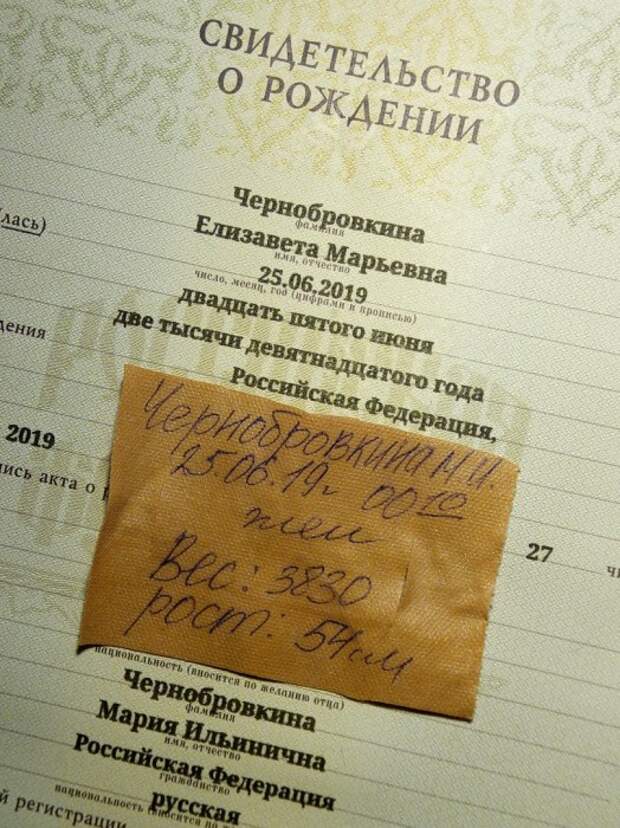 СВИДЕТЕЛЬСТВО
О РОЖДЕНИИ
Чернобровкина
фамилия
лась)
Елизавета Марьевна
имя, отчество
25.06.2019
число, месяц, год (цифрами и прописью)
двадцать пятого июня
дения
две тысячи девятнадцатого года
Российская Федерация,
2019
пись акта о р
Чернобровкина М.И.
25.06.19г 00 10
жен
Вес: 3830
рост: 54см
27
чи
национальность (вносится по желанию отца)
Чернобровкина
фамилия
Мария Ильинична
имя, отчество
Российская Федерация
гражданство
русская
национальность (вносится по
й регистрации